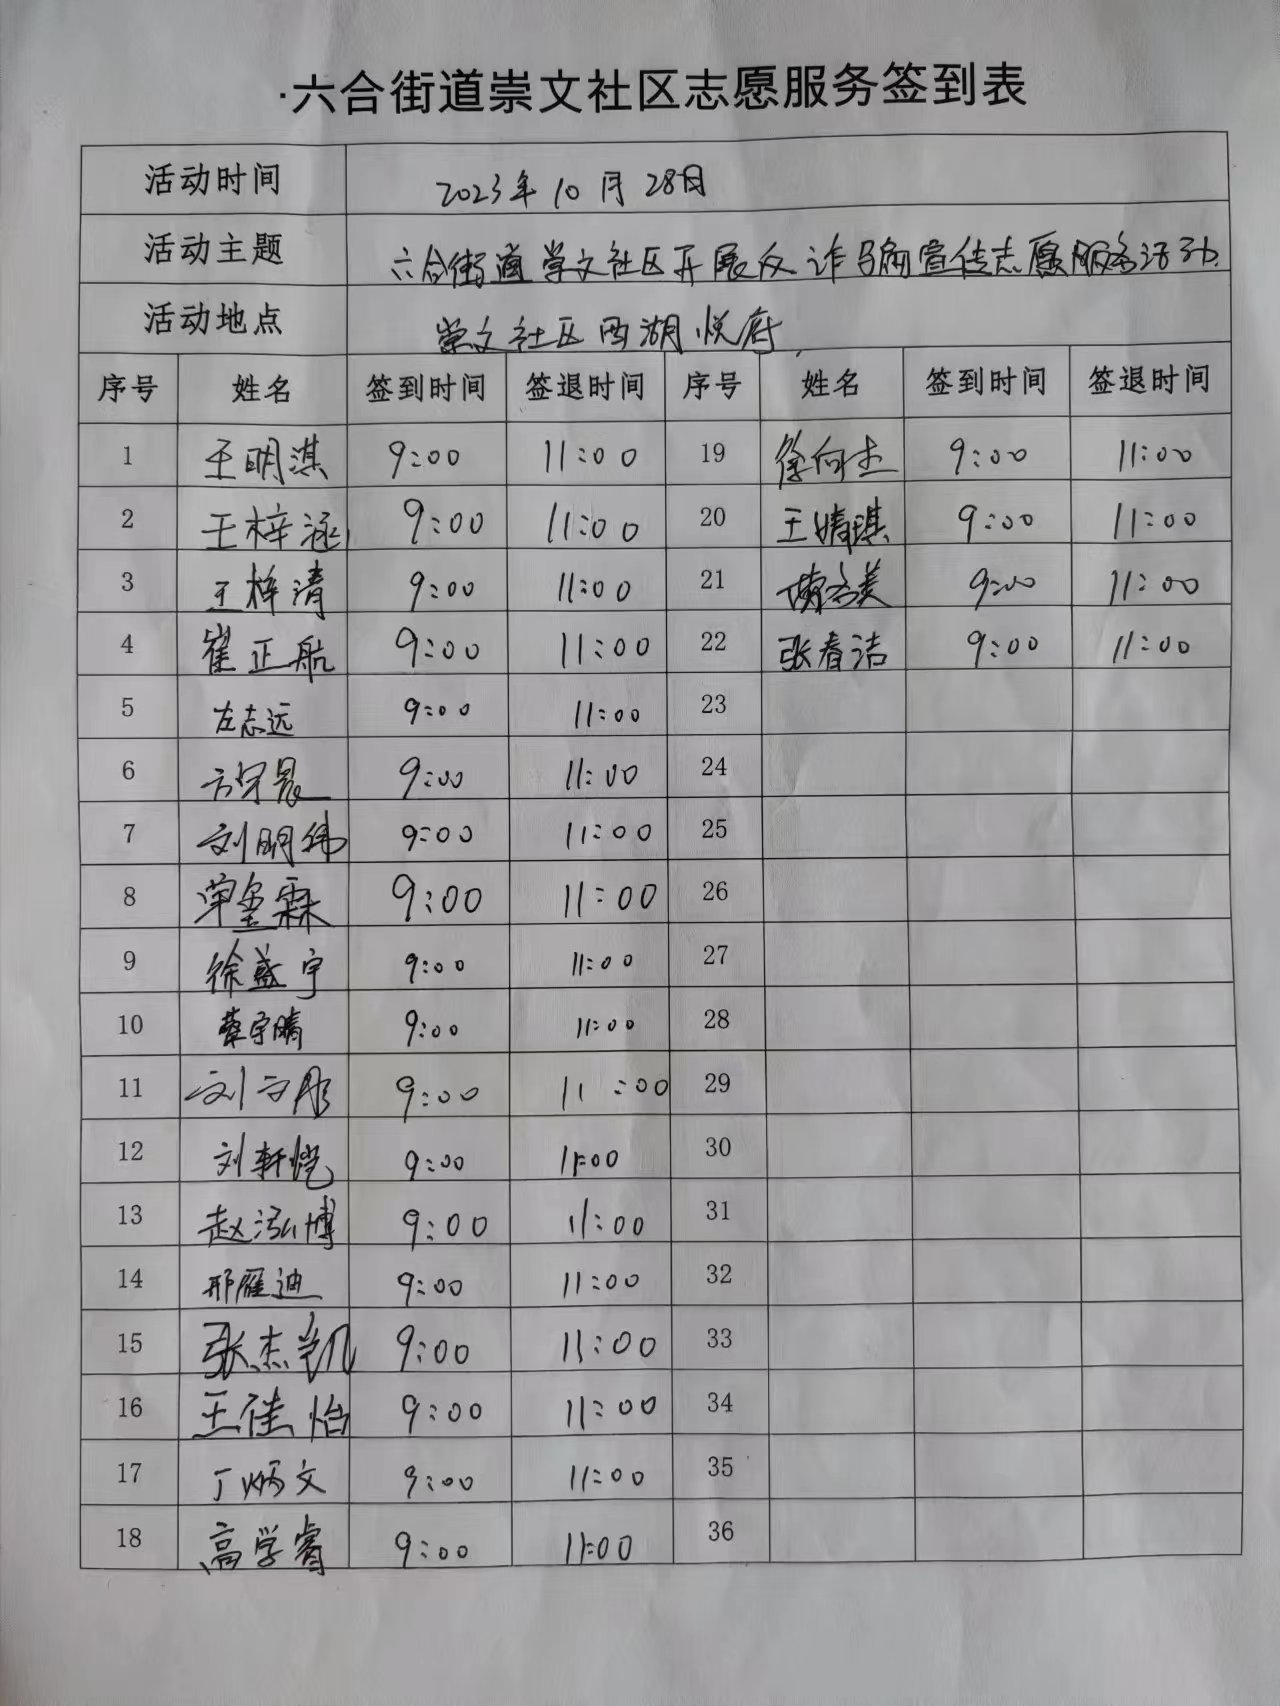 ·六合街道崇文社区志愿服务签到表
活动时间 2023年10月28日
活动主题 六合街道崇文社区开展反诈骗宣传志愿服务活动
活动地点 崇文社区西湖悦府
序号 姓名 签到时间 签退时间 序号 姓名 签到时间 签退时间
1 王明淇 9:00 11:00 19 徐向杰 9:00 11:00
2 王梓涵 9:00 11:00 20 王婧琪 9:00 11:00
3 王梓清 9:00 11:00 21 9:00 11:00
4 崔正航 9:00 11:00 22 张春洁 9:00 11:00
5 左志远 9:00 11:00 23
6 9:00 11:00 24
7 刘明伟 9:00 11:00 25
8 9:00 11:00 26
9 徐盛宇 9:00 11:00 27
10 9:00 11:00 28
11 9:00 11:00 29
12 刘轩恺 9:00 11:00 30
13 赵泓博 9:00 11:00 31
14 邢雁迪 9:00 11:00 32
15 张杰凯 9:00 11:00 33
16 王佳怡 9:00 11:00 34
17 丁炳文 9:00 11:00 35
18 高学睿 9:00 11:00 36